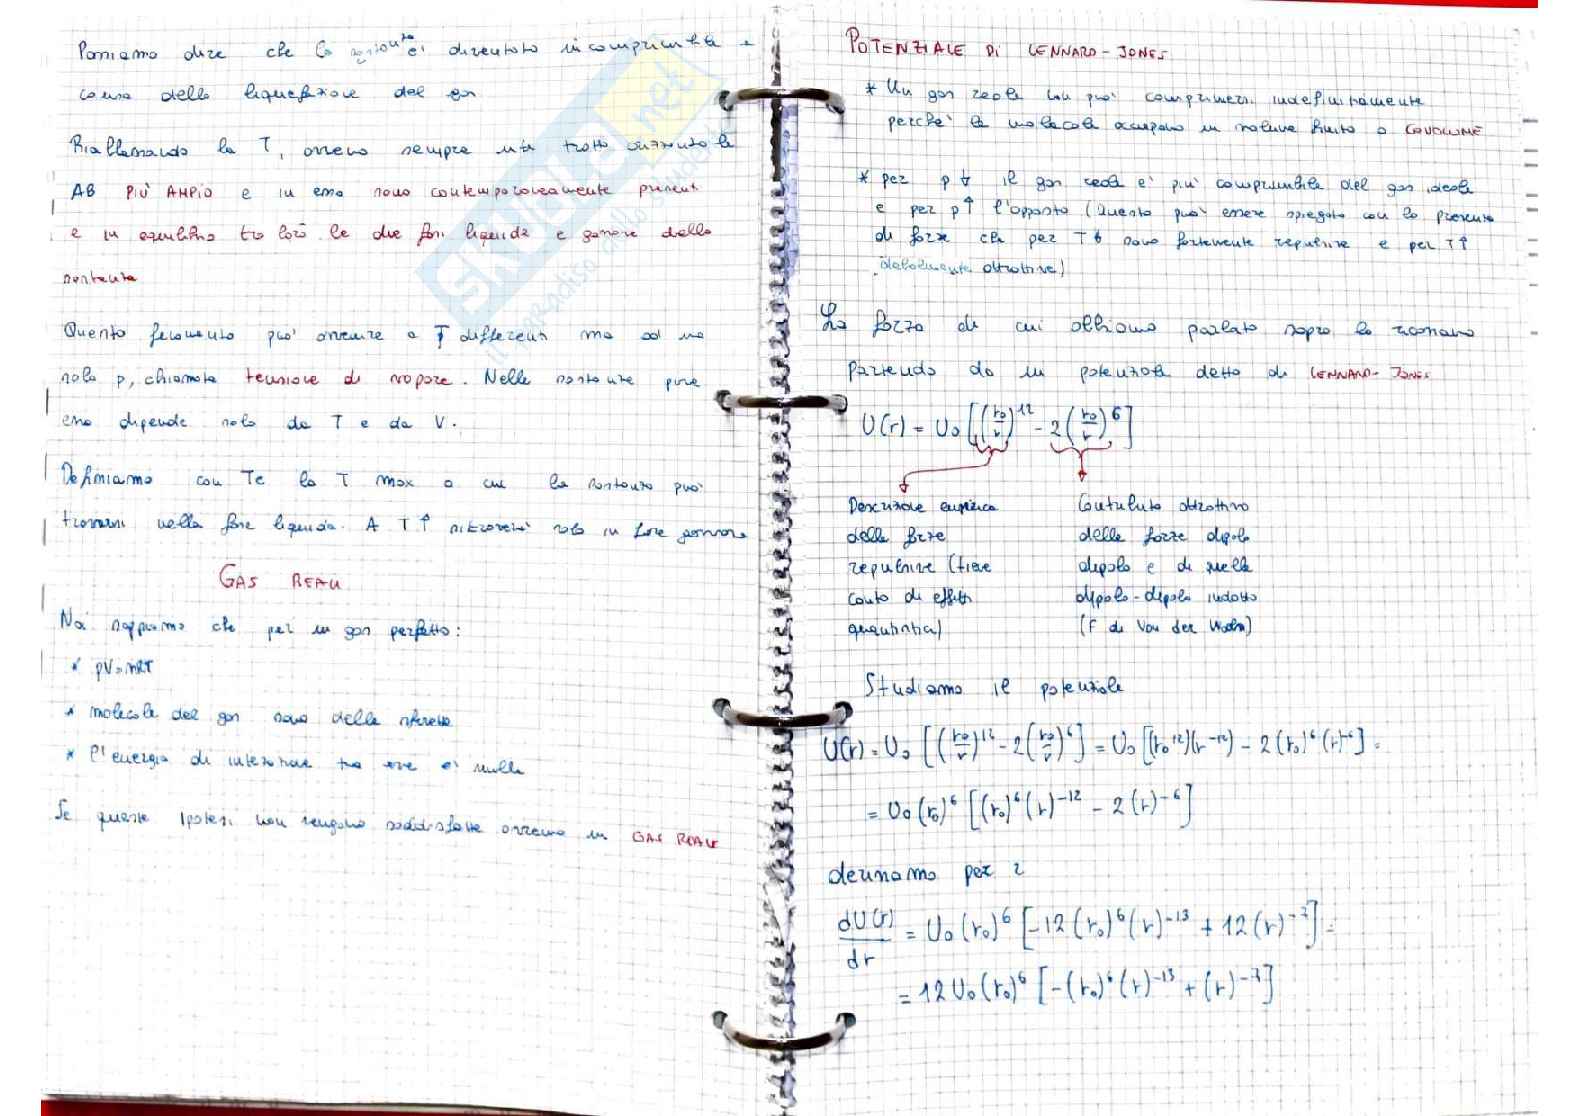 Possiamo dire che la sostanza è diventata incomprimibile a
causa della liquefazione del gas
Riabbassando la T, avremo sempre un tratto orizzontale
AB PIÙ AMPIO e in esso sono contemporaneamente presenti
e in equilibrio tra loro le due fasi liquida e gassosa della
sostanza
Questo fenomeno può avvenire a T differenti ma ad una
sola p, chiamata tensione di vapore. Nelle sostanze pure
essa dipende solo da T e da V.
Definiamo con Tc la T max a cui la sostanza può
trovarsi nella fase liquida. A T↑ si troverà solo in fase gassosa
GAS REALI
Noi sappiamo che per un gas perfetto:
* pV=nRT
* molecole del gas sono delle sferette
* l'energia di interazione tra esse è nulla
Se queste ipotesi non vengono soddisfatte avremo un GAS REALE
POTENZIALE DI LENNARD-JONES
* Un gas reale non può comprimersi indefinitamente
perché le molecole occupano un volume finito o COVOLUME
* per p↓ il gas reale è più comprimibile del gas ideale
e per p↑ l'opposto (Questo può essere spiegato con la presenza
di forze che per T↓ sono fortemente repulsive e per T↑
debolmente attrattive)
La forza di cui abbiamo parlato sopra la ricaviamo
partendo da un potenziale detto di LENNARD-JONES
U(r) = U₀ [(r₀/r)¹² - 2(r₀/r)⁶]
Descrizione empirica
delle forze
repulsive (tiene
conto di effetti
quantistici)
Contributo attrattivo
delle forze dipolo
dipolo e di quelle
dipolo-dipolo indotto
(F di Van der Waals)
Studiamo il potenziale
U(r) = U₀ [(r₀/r)¹² - 2(r₀/r)⁶] = U₀ [(r₀¹²)(r⁻¹²) - 2(r₀)⁶(r)⁻⁶] =
= U₀(r₀)⁶ [(r₀)⁶(r)⁻¹² - 2(r)⁻⁶]
deriviamo per r
dU(r)/dr = U₀(r₀)⁶ [-12(r₀)⁶(r)⁻¹³ + 12(r)⁻⁷] =
= 12U₀(r₀)⁶ [-(r₀)⁶(r)⁻¹³ + (r)⁻⁷]
SKUOLA.net
il paradiso dello studente